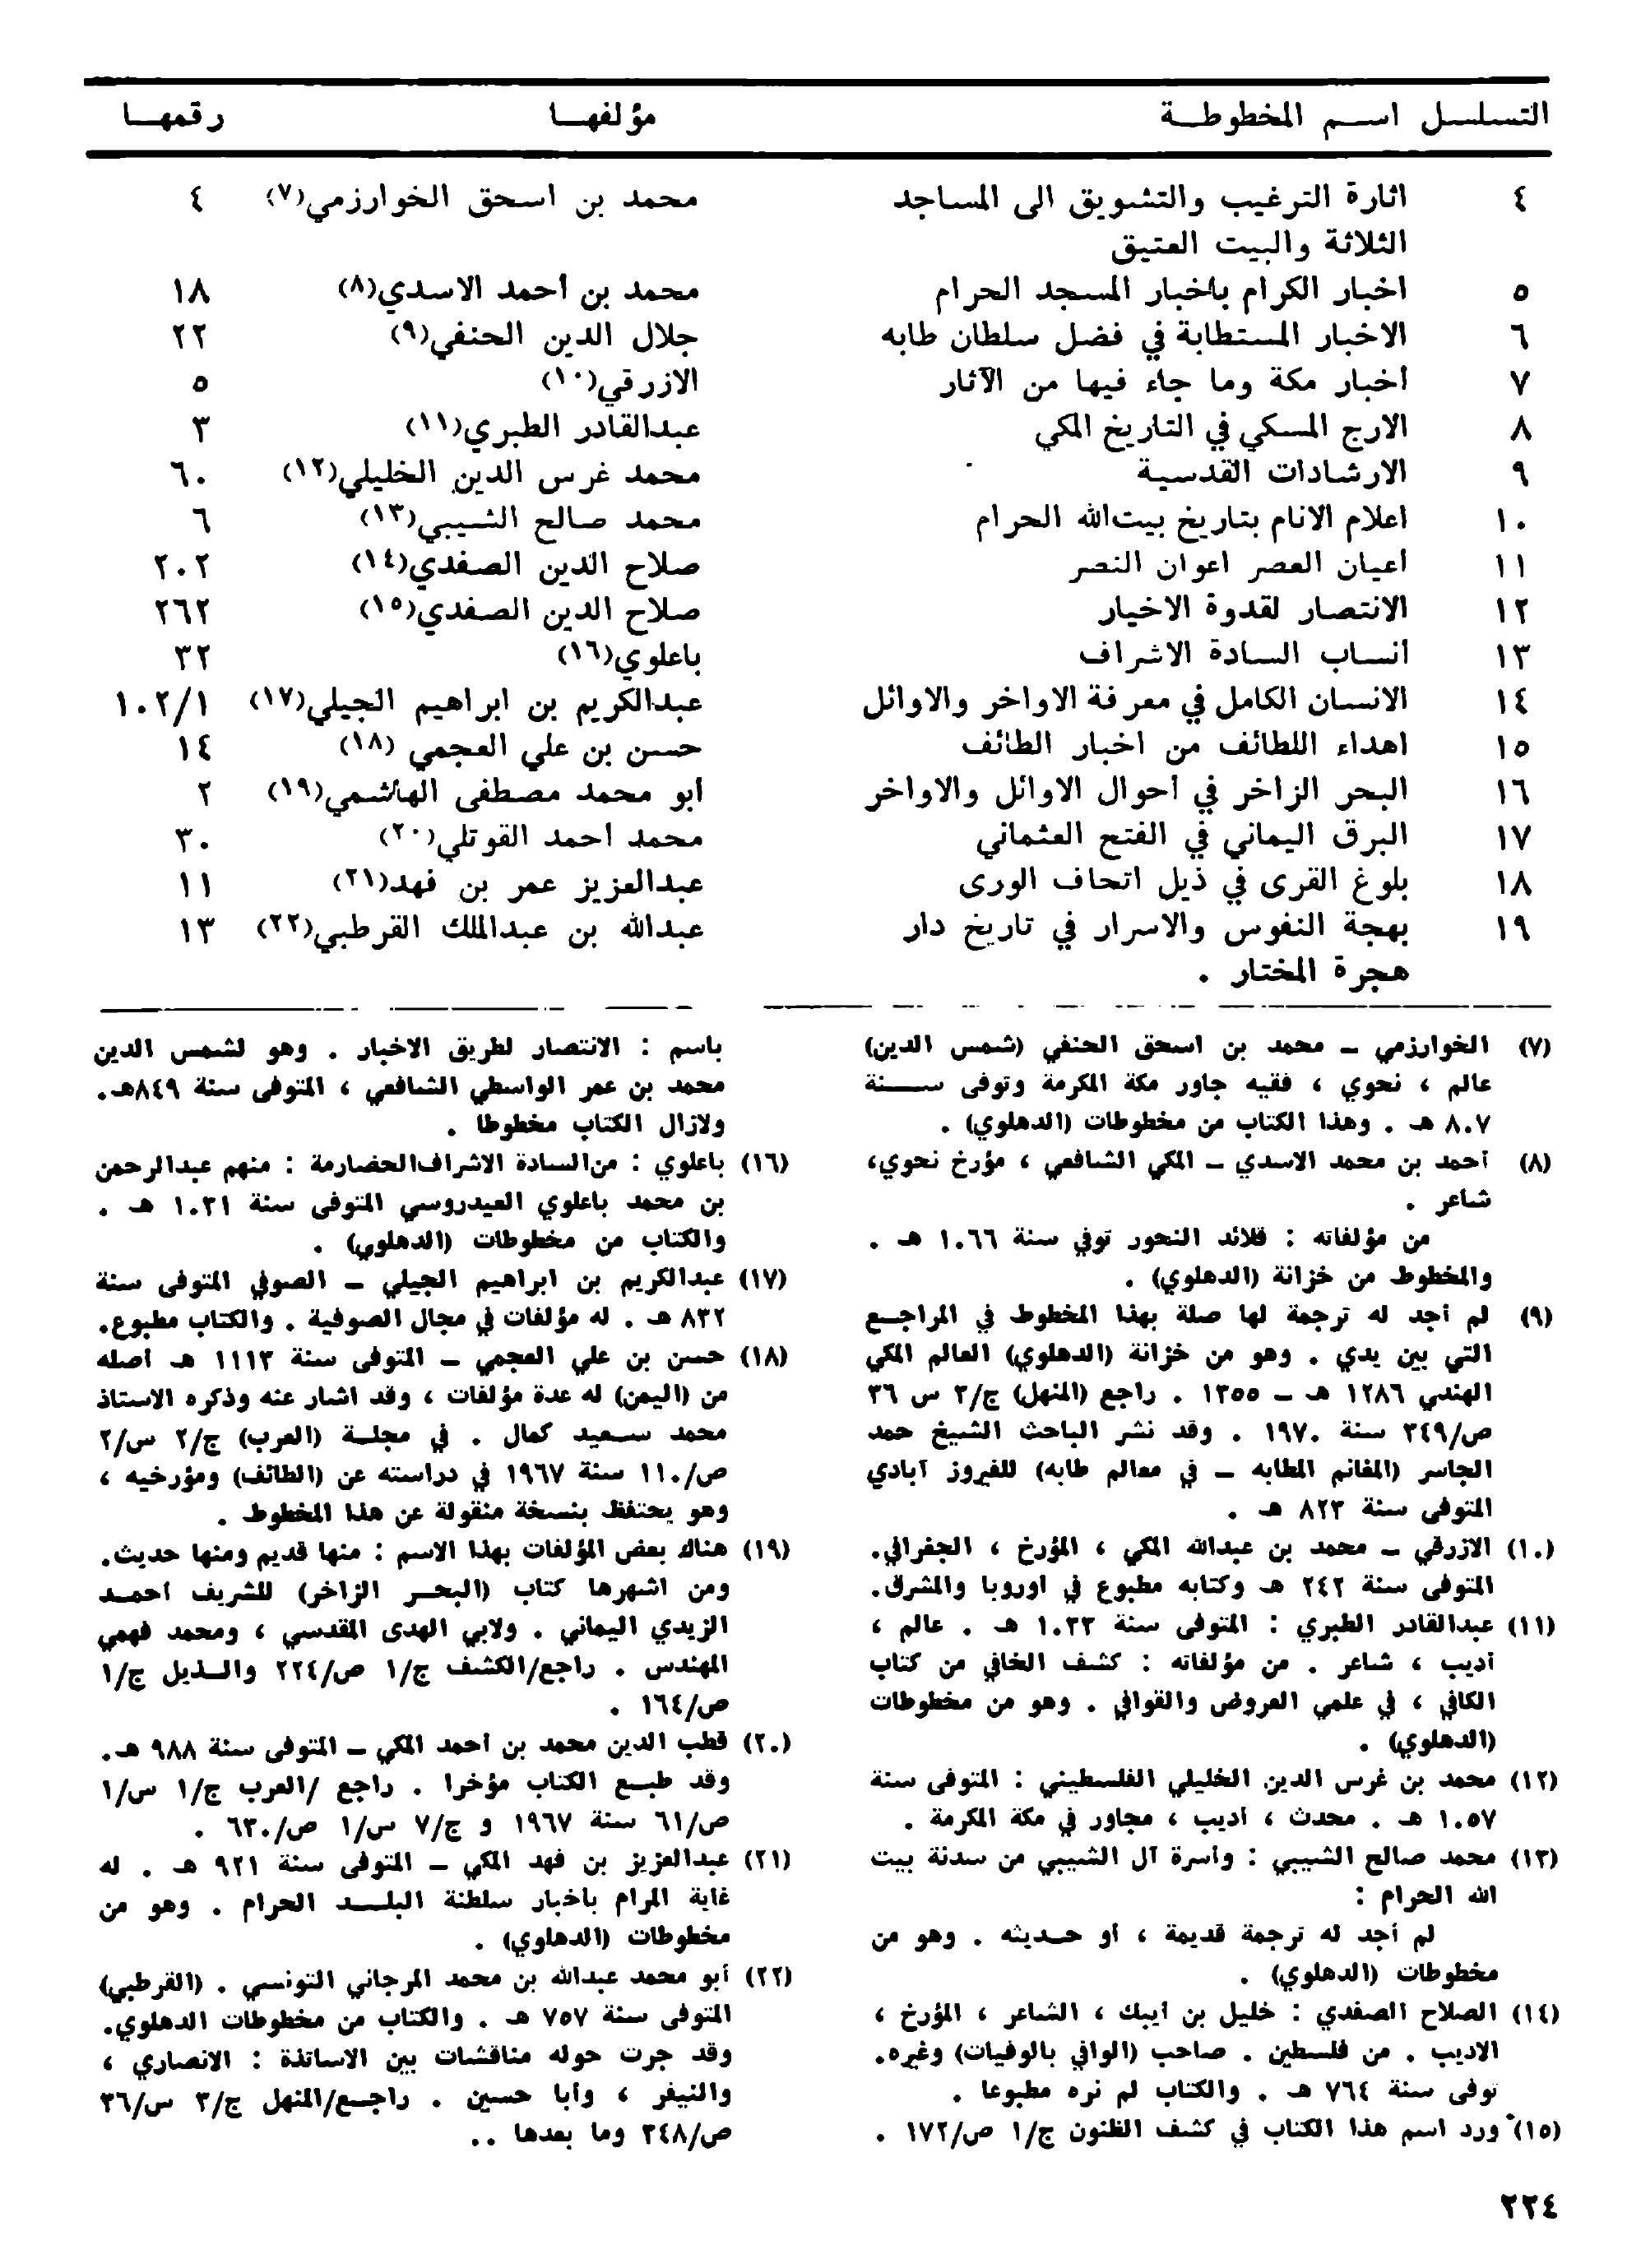 التسلسل اسم المخطوطة مؤلفها رقمها
٤ اثارة الترغيب والتشويق الى المساجد محمد بن اسحق الخوارزمي(٧) ٤
الثلاثة والبيت العتيق
٥ اخبار الكرام باخبار المسجد الحرام محمد بن أحمد الاسدي(٨) ١٨
٦ الاخبار المستطابة في فضل سلطان طابه جلال الدين الحنفي(٩) ٢٢
٧ أخبار مكة وما جاء فيها من الآثار الازرقي(١٠) ٥
٨ الارج المسكي في التاريخ المكي عبدالقادر الطبري(١١) ٣
٩ الارشادات القدسية محمد غرس الدين الخليلي(١٢) ٦٠
١٠ اعلام الانام بتاريخ بيت الله الحرام محمد صالح الشيبي(١٣) ٦
١١ أعيان العصر اعوان النصر صلاح الدين الصفدي(١٤) ٢٠٢
١٢ الانتصار لقدوة الاخيار صلاح الدين الصفدي(١٥) ٢٦٢
١٣ أنساب السادة الاشراف باعلوي(١٦) ٣٢
١٤ الانسان الكامل في معرفة الاواخر والاوائل عبدالكريم بن ابراهيم الجيلي(١٧) ١٠٢/١
١٥ اهداء اللطائف من اخبار الطائف حسن بن علي العجمي (١٨) ١٤
١٦ البحر الزاخر في أحوال الاوائل والاواخر أبو محمد مصطفى الهاشمي(١٩) ٢
١٧ البرق اليماني في الفتح العثماني محمد أحمد القوتلي(٢٠) ٣٠
١٨ بلوغ القرى في ذيل اتحاف الورى عبدالعزيز عمر بن فهد(٢١) ١١
١٩ بهجة النفوس والاسرار في تاريخ دار عبدالله بن عبدالملك القرطبي(٢٢) ١٣
هجرة المختار .
(٧) الخوارزمي – محمد بن اسحق الحنفي (شمس الدين)
عالم ، نحوي ، فقيه جاور مكة المكرمة وتوفى سنة
٨٠٧ هـ . وهذا الكتاب من مخطوطات (الدهلوي) .
(٨) أحمد بن محمد الاسدي – المكي الشافعي ، مؤرخ نحوي،
شاعر .
من مؤلفاته : قلائد النحور توفي سنة ١٠٦٦ هـ .
والمخطوط من خزانة (الدهلوي) .
(٩) لم أجد له ترجمة لها صلة بهذا المخطوط في المراجع
التي بين يدي . وهو من خزانة (الدهلوي) العالم المكي
الهندي ١٢٨٦ هـ – ١٣٥٥ . راجع (المنهل) ج/٣ س ٣٦
ص/٣٤٩ سنة ١٩٧٠ . وقد نشر الباحث الشيخ حمد
الجاسر (المغانم المطابه – في معالم طابه) للفيروز آبادي
المتوفى سنة ٨٢٣ هـ .
(١٠) الازرقي – محمد بن عبدالله المكي ، المؤرخ ، الجغرافي.
المتوفى سنة ٢٤٢ هـ وكتابه مطبوع في اوروبا والمشرق.
(١١) عبدالقادر الطبري : المتوفى سنة ١٠٣٣ هـ . عالم ،
أديب ، شاعر . من مؤلفاته : كشف الخافي من كتاب
الكافي ، في علمي العروض والقوافي . وهو من مخطوطات
(الدهلوي) .
(١٢) محمد بن غرس الدين الخليلي الفلسطيني : المتوفى سنة
١٠٥٧ هـ . محدث ، أديب ، مجاور في مكة المكرمة .
(١٣) محمد صالح الشيبي : وأسرة آل الشيبي من سدنة بيت
الله الحرام :
لم أجد له ترجمة قديمة ، أو حديثه . وهو من
مخطوطات (الدهلوي) .
(١٤) الصلاح الصفدي : خليل بن أيبك ، الشاعر ، المؤرخ ،
الاديب . من فلسطين . صاحب (الوافي بالوفيات) وغيره.
توفى سنة ٧٦٤ هـ . والكتاب لم نره مطبوعا .
(١٥) ورد اسم هذا الكتاب في كشف الظنون ج/١ ص/١٧٢ .
باسم : الانتصار لطريق الاخبار . وهو لشمس الدين
محمد بن عمر الواسطي الشافعي ، المتوفى سنة ٨٤٩هـ.
ولازال الكتاب مخطوطا .
(١٦) باعلوي : من السادة الاشراف الحضارمة : منهم عبدالرحمن
بن محمد باعلوي العيدروسي المتوفى سنة ١٠٣١ هـ .
والكتاب من مخطوطات (الدهلوي) .
(١٧) عبدالكريم بن ابراهيم الجيلي – الصوفي المتوفى سنة
٨٣٢ هـ . له مؤلفات في مجال الصوفية . والكتاب مطبوع.
(١٨) حسن بن علي العجمي – المتوفى سنة ١١١٣ هـ أصله
من (اليمن) له عدة مؤلفات ، وقد اشار عنه وذكره الاستاذ
محمد سعيد كمال . في مجلة (العرب) ج/٢ س/٢
ص/١١٠ سنة ١٩٦٧ في دراسته عن (الطائف) ومؤرخيه ،
وهو يحتفظ بنسخة منقولة عن هذا المخطوط .
(١٩) هناك بعض المؤلفات بهذا الاسم : منها قديم ومنها حديث.
ومن اشهرها كتاب (البحر الزاخر) للشريف أحمد
الزيدي اليماني . ولابي الهدى المقدسي ، ومحمد فهمي
المهندس . راجع/الكشف ج/١ ص/٢٢٤ والذيل ج/١
ص/١٦٤ .
(٢٠) قطب الدين محمد بن أحمد المكي – المتوفى سنة ٩٨٨ هـ.
وقد طبع الكتاب مؤخرا . راجع /العرب ج/١ س/١
ص/٦١ سنة ١٩٦٧ و ج/٧ س/١ ص/٦٣٠ .
(٢١) عبدالعزيز بن فهد المكي – المتوفى سنة ٩٢١ هـ . له
غاية المرام باخبار سلطنة البلد الحرام . وهو من
مخطوطات (الدهلوي) .
(٢٢) أبو محمد عبدالله بن محمد المرجاني التونسي . (القرطبي)
المتوفى سنة ٧٥٧ هـ . والكتاب من مخطوطات الدهلوي.
وقد جرت حوله مناقشات بين الاساتذة : الانصاري ،
والنيفر ، وأبا حسين . راجع/المنهل ج/٣ س/٣٦
ص/٣٤٨ وما بعدها ..
٢٢٤